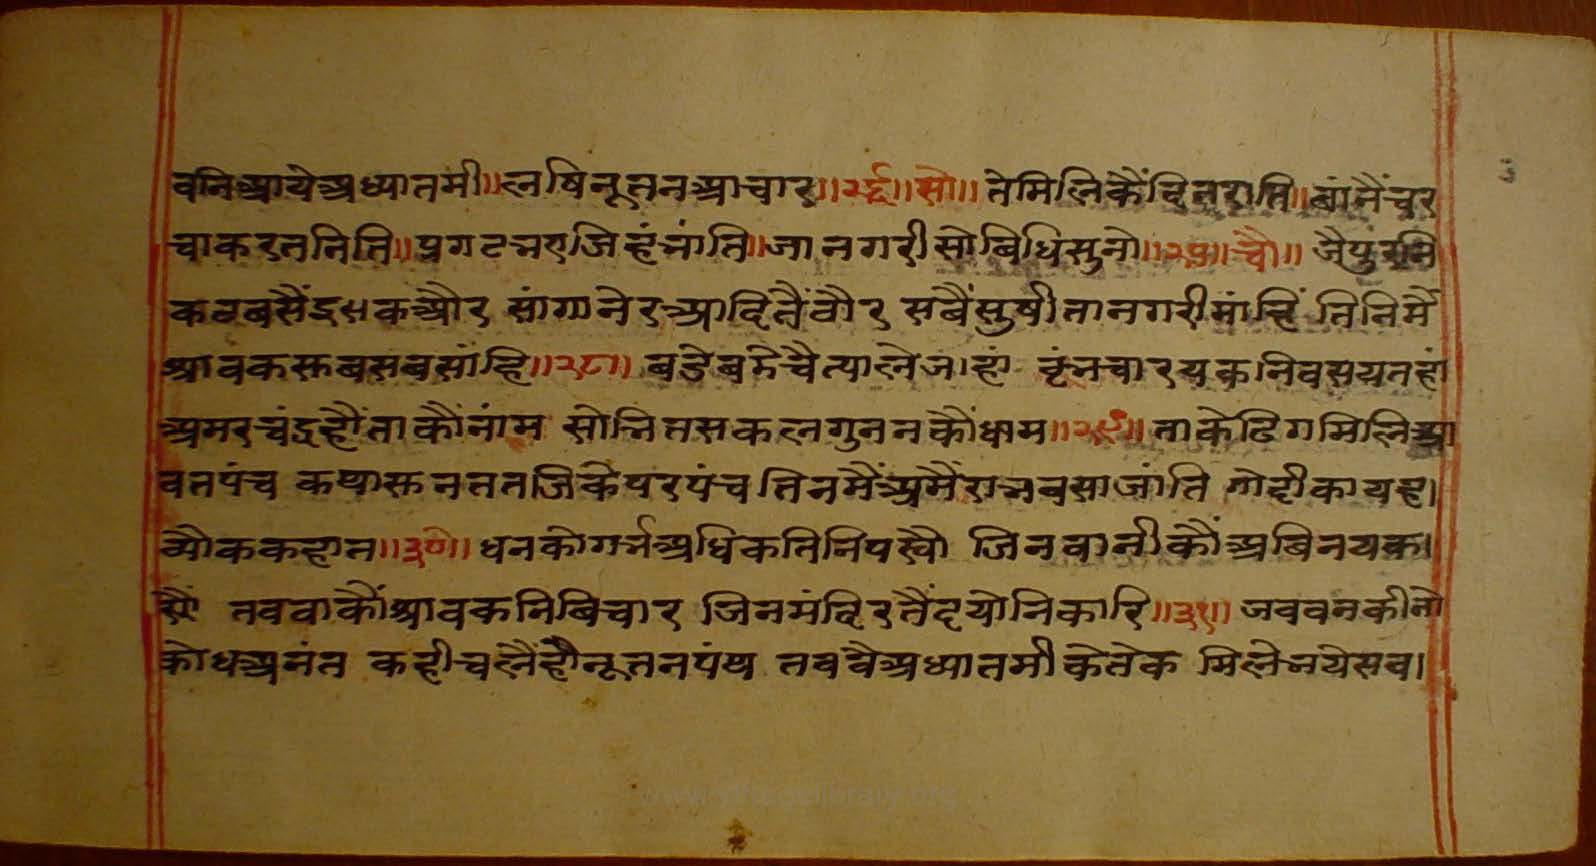 वनिआयेअध्यातमी॥लषिनूतनआचार॥२६॥सो॥ तेमिलिकैंदिनराति॥बांनैंचर
चाकरतनिति॥प्रगटभएजिहंभांति॥जानगरीसोबिधिसुनो॥२७॥चौ॥ जैपुरनि
कटबसैंइकऔर सांगानेरआदितैंठौर सबैंसुषीतानगरीमांहिं तिनिमैं
श्रावकसबसबसांहि॥२८॥ बडेबडेचैत्यालेजाहां ब्रंभचारयकनिवसयतहां
अमरचंदहौंताकौंनांम सोभितसकलगुननकौंधाम॥२९॥ताकेढिगमिलिआ
वतपंच कथासुनततजिकेपरपंच तिनमैंअमैंराभवसाजांति गोदीकायह
व्योककहात॥३०॥धनकोगर्भअधिकतिनिधस्यौ जिनवानीकौंअबिनयक
स्यौं तबवाकौंश्रावकनिबिचार जिनमंदिरतैंदयोनिकारि॥३१॥ जबवनकीनो
क्रोधअनंत कहीचलैंहौनूतनपंथ तबवैअध्यातमीकेतेक मिलेभयेसब